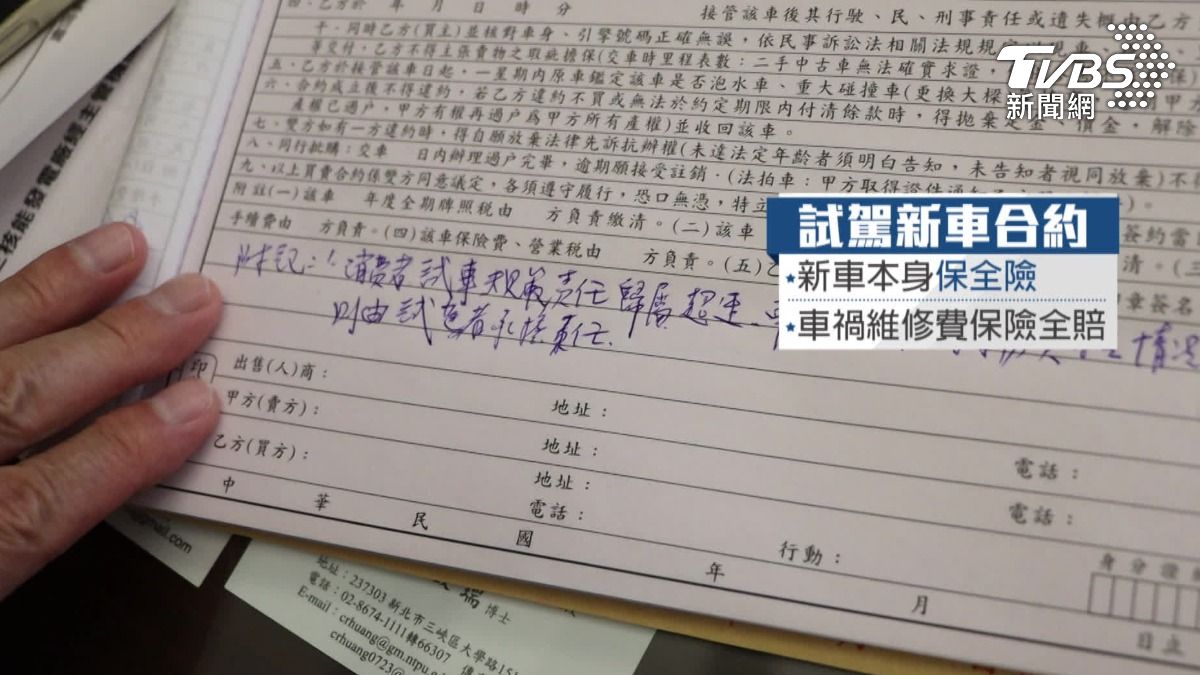 四、乙方於 年 月 日 時 分 接管該車後其行駛、民、刑事責任或遺失概由乙方
十、同時乙方(買主)並核對車身、引擎號碼正確無誤，依民事訴訟法相關法規規定
等交付，乙方不得主張貴物之瑕疵擔保(交車時里程表數：二手中古車無法確實求證，
五、乙方於接管該車日起，一星期內原車鑑定該車是否泡水車、重大碰撞車(更換大樑
六、合約成立後不得違約，若乙方違約不買或無法於約定期限內付清餘款時，得拋棄定金、價金，解除
產權已過戶，甲方有權再過戶為甲方所有產權)並收回該車。
七、雙方如有一方違約時，得自願放棄法律先訴抗辦權(未達法定年齡者須明白告知，未告知者視同放棄)不得
八、同行批購：交車 日內辦理過戶完畢，逾期願接受註銷．(法拍車：甲方取得證件通知
九、以上買賣合約係雙方同意議定，各須遵守履行，恐口無憑，特立
附註(一)該車 年度全期牌照稅由 方負責繳清。(二)該車
手續費由 方負責。(四)該車保險費、營業稅由 方負責。(五)乙
簽約當
清。(三
章簽名
附記：1.消費者試車規範責任歸屬超速
情況
則由試駕者承擔責任.
TVBS
新聞網
試駕新車合約
★新車本身保全險
★車禍維修費保險全賠
印
出售(人)商：
甲方(賣方)： 地址： 電話：
乙方(買方)： 地址： 電話：
地址：
電話： 行動： 身分證
中 華 民 國 年 月 日立
核能發電廠經主管機
@gmail.com
瑞 博士
地址：237303 新北市三峽區大學路151
電話：02-8674-1111轉66307
E-mail：crhuang@gm.ntpu.
crhuang0723@